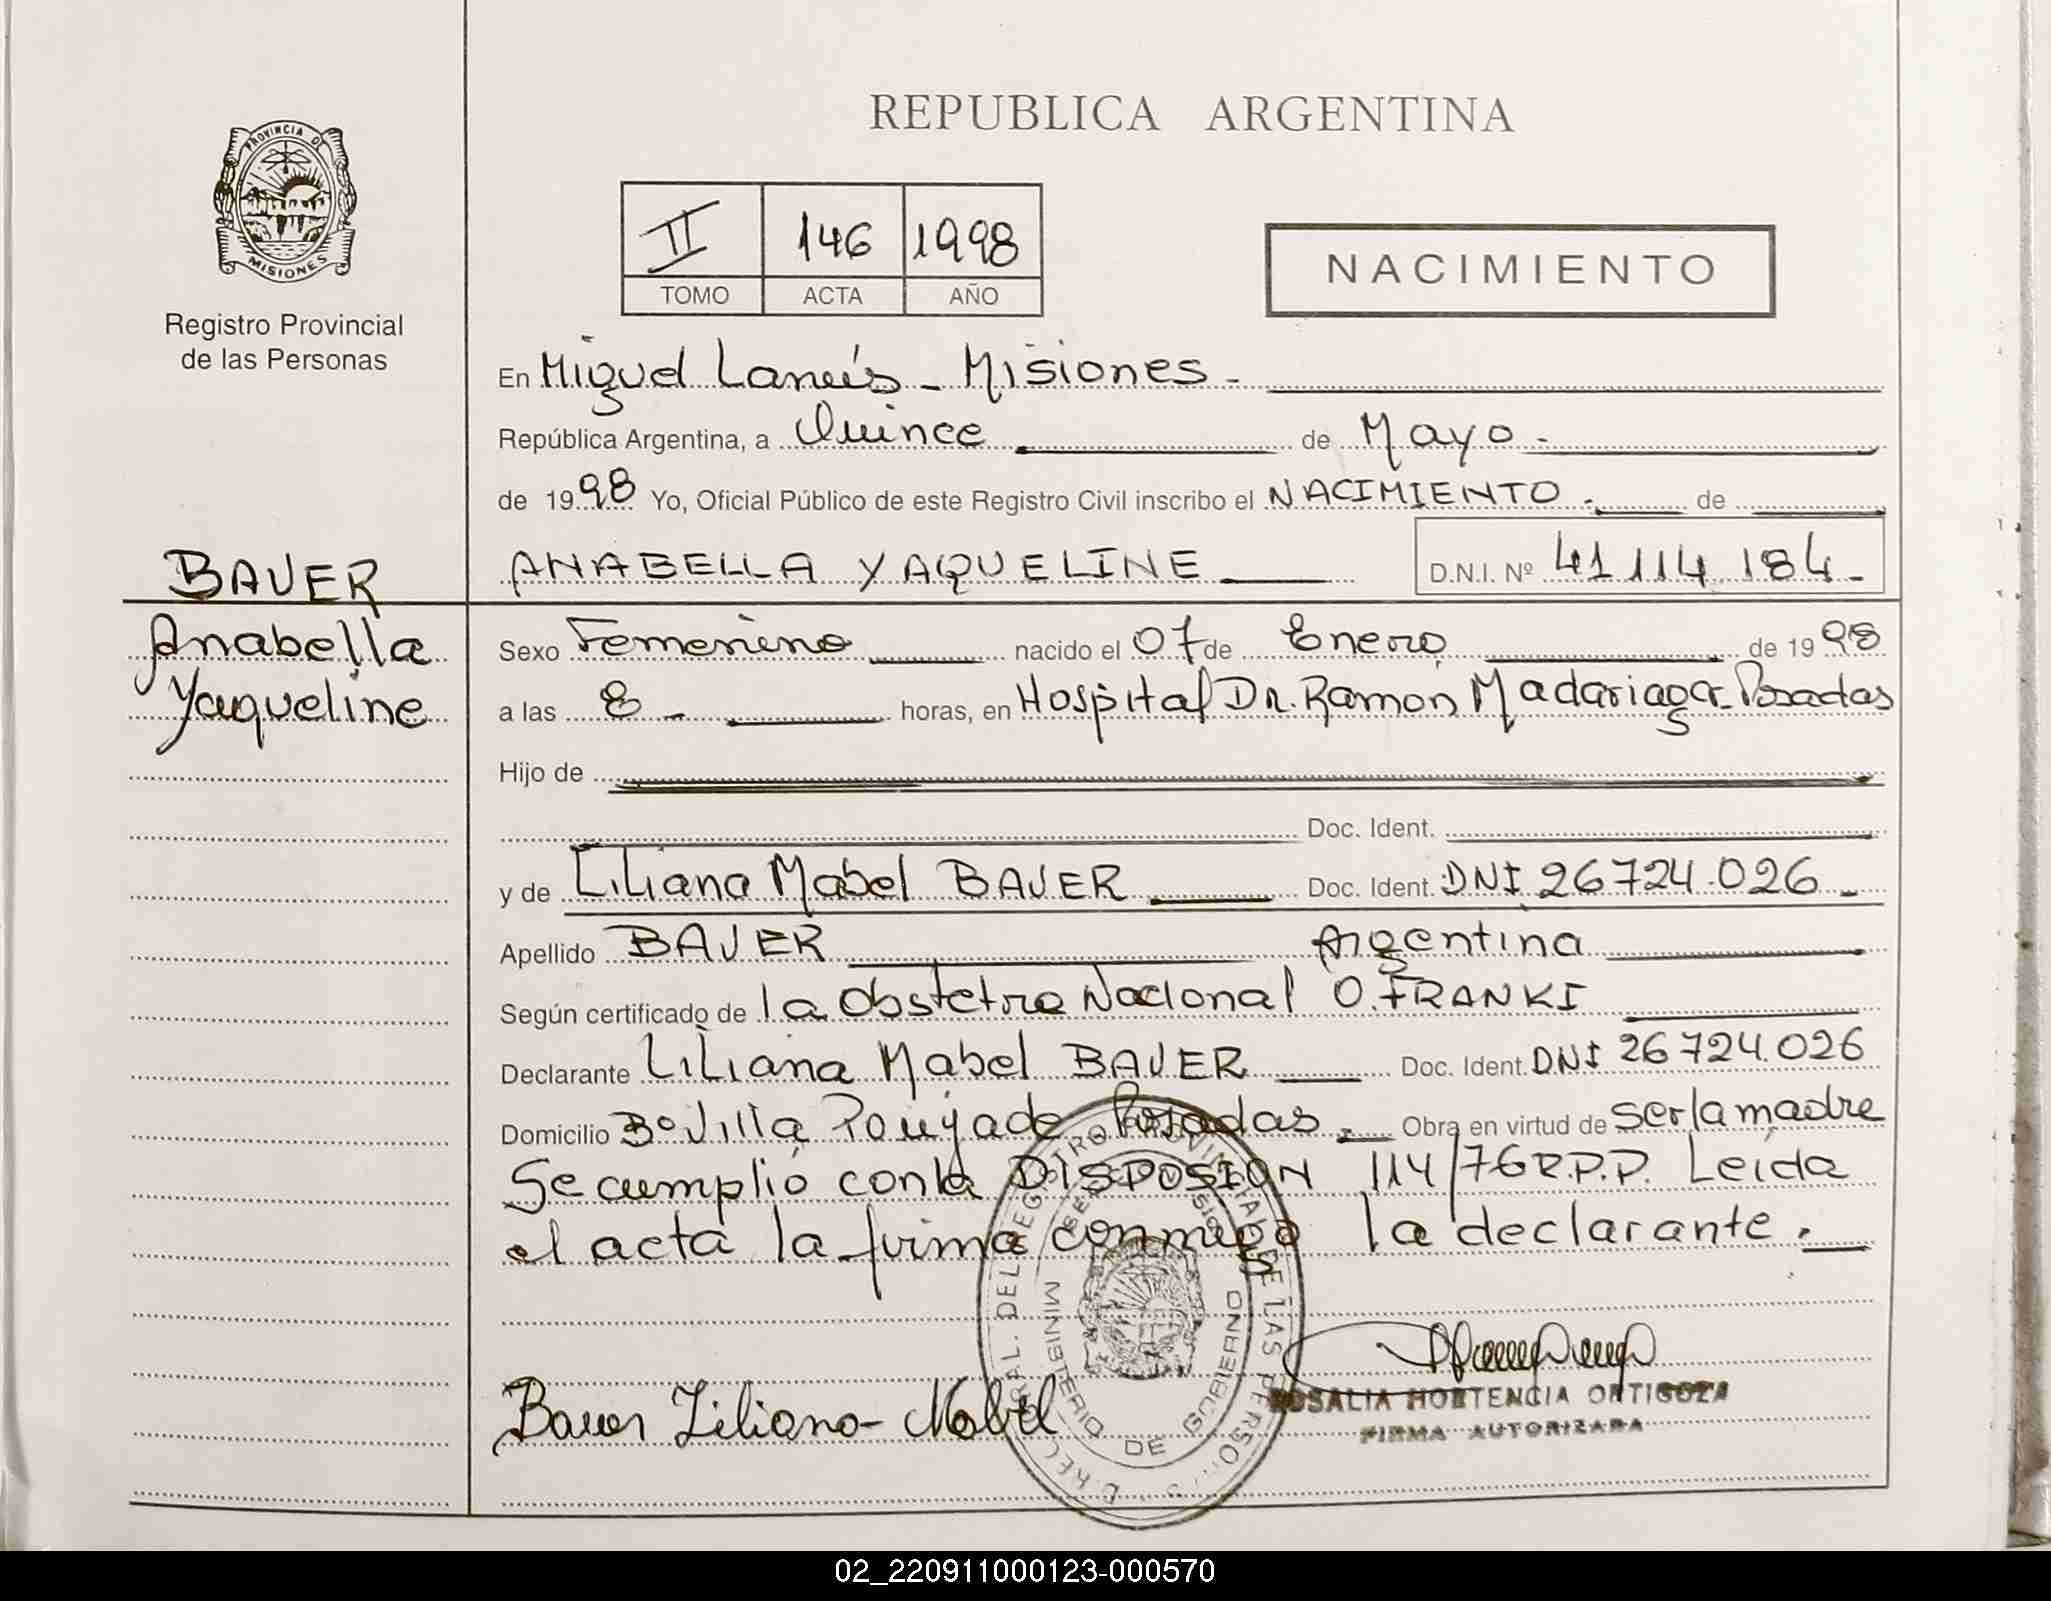 REPUBLICA ARGENTINA
PROVINCIA DE
MISIONES
Registro Provincial
de las Personas
II 146 1998
TOMO ACTA AÑO
NACIMIENTO
En Miguel Lanús - Misiones -
República Argentina, a Quince de Mayo -
de 1998 Yo, Oficial Público de este Registro Civil inscribo el NACIMIENTO - de
BAUER
ANABELLA YAQUELINE D.N.I. Nº 41 114 184 -
Anabella
Yaqueline
Sexo Femenino nacido el 07 de Enero de 1998
a las 8 - horas, en Hospital Dr. Ramon Madariaga - Posadas
Hijo de
Doc. Ident.
y de Liliana Mabel BAUER Doc. Ident. DNI 26724.026 -
Apellido BAUER Argentina
Según certificado de la Obstetra Nacional O. FRANKI
Declarante Liliana Mabel BAUER Doc. Ident. DNI 26724.026
Domicilio Bº Villa Poujade Posadas. Obra en virtud de ser la madre
Se cumplió con la DISPOSION 114/76 R.P.P. Leida
el acta la firma conmigo la declarante.
Bauer Liliana - Mabel
MINISTERIO DE GOBIERNO
ROSALIA HORTENCIA ORTIGOZA
FIRMA AUTORIZADA
02_220911000123-000570